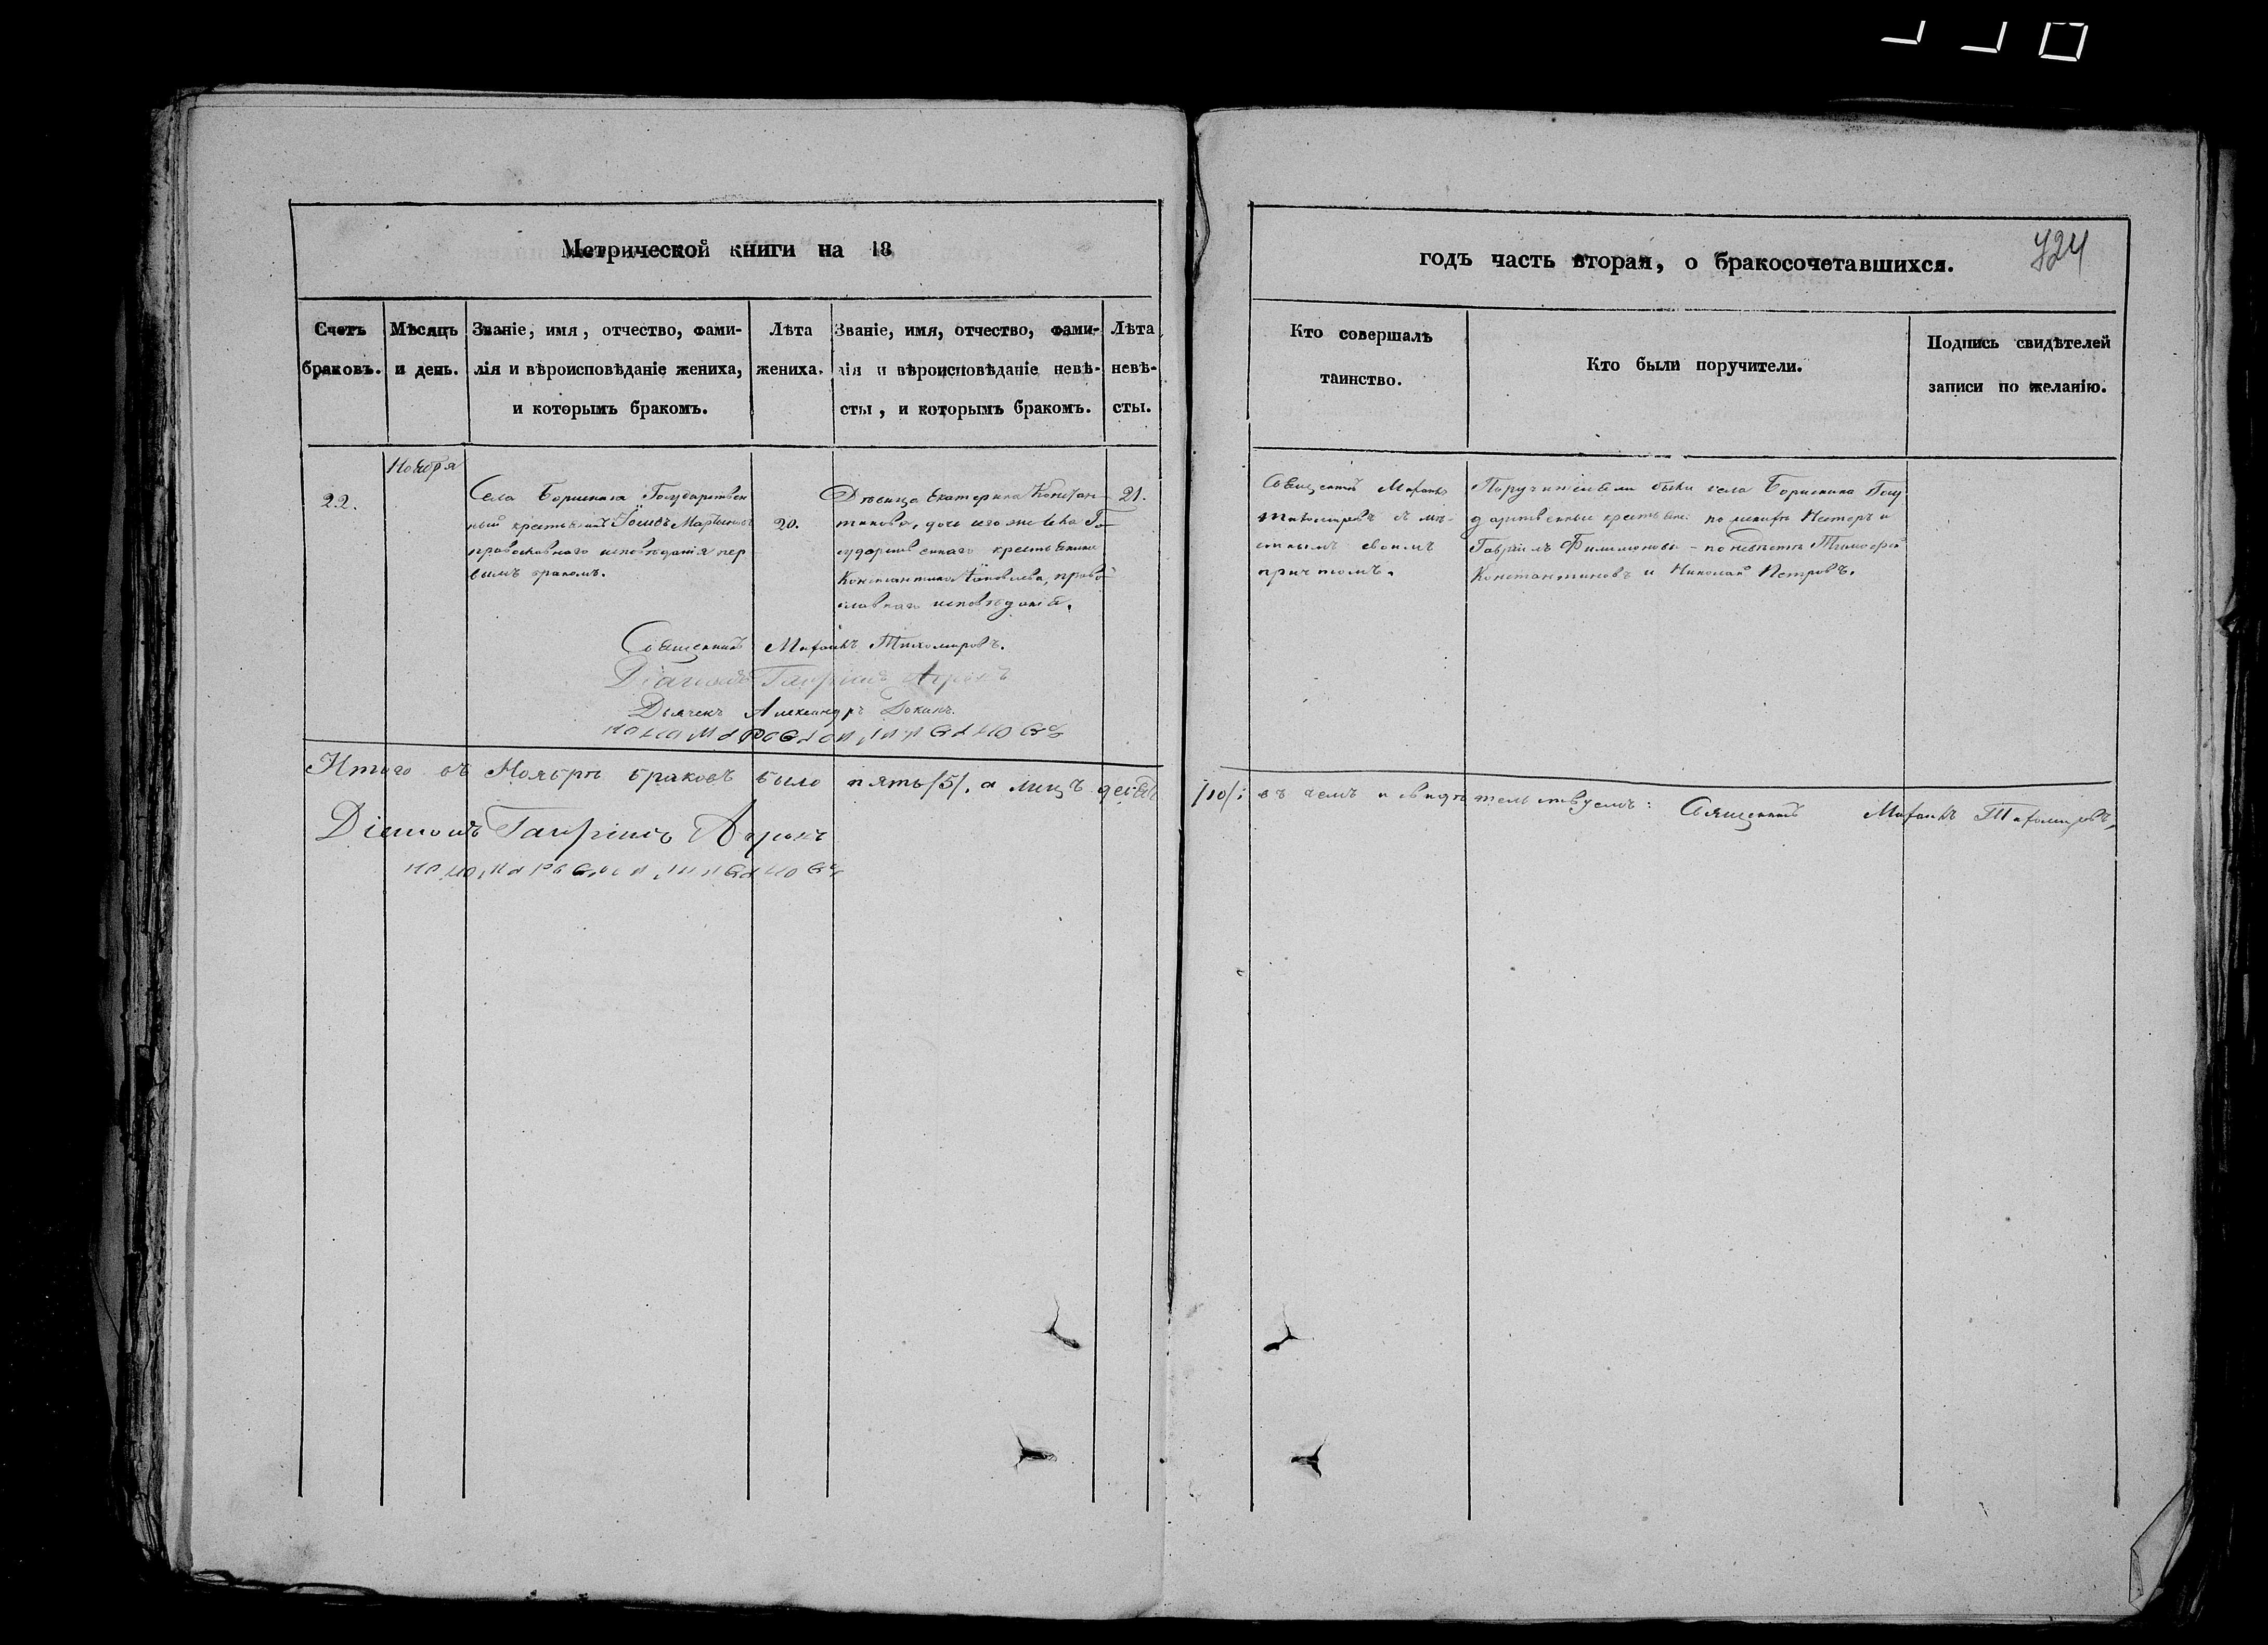 Метрической книги на 18
годъ часть вторая, о бракосочетавшихся.
724
Счетъ браковъ.
Мѣсяцъ и день.
Званіе, имя, отчество, фами-
лія и вѣроисповѣданіе жениха,
и которымъ бракомъ.
Лѣта жениха.
Званіе, имя, отчество, фами-
лія и вѣроисповѣданіе невѣ-
сты, и которымъ бракомъ.
Лѣта невѣ-
сты.
Кто совершалъ
таинство.
Кто были поручители.
Подпись свидѣтелей
записи по желанію.
Ноября
22.
Села Борискина Государствен
ный крестьянинъ Мартыновъ
православнаго исповѣданія пер
вымъ бракомъ.
20.
Дѣвица Екатерина Констан-
тинова, дочь того же села Го-
сударственнаго крестьянина
Константина Яковлева, право-
славнаго исповѣданія.
21.
Священникъ
Тихомировъ съ мѣ-
стнымъ своимъ
причтомъ.
Поручителями были села Борискина Госу
дарственные крестьяне: по женихѣ Несторъ и
Гавріилъ Филимоновы - по невѣстѣ Тимофей
Константиновъ и Николай Петровъ.
Священникъ Тихомировъ.
Діаконъ Гавріилъ
Дьячекъ Александръ
Итого въ Ноябрѣ браковъ было пять /5/, а лицъ десять /10/; въ чемъ и свидѣтельствуемъ: Священникъ Тихомировъ,
Діаконъ Гавріилъ